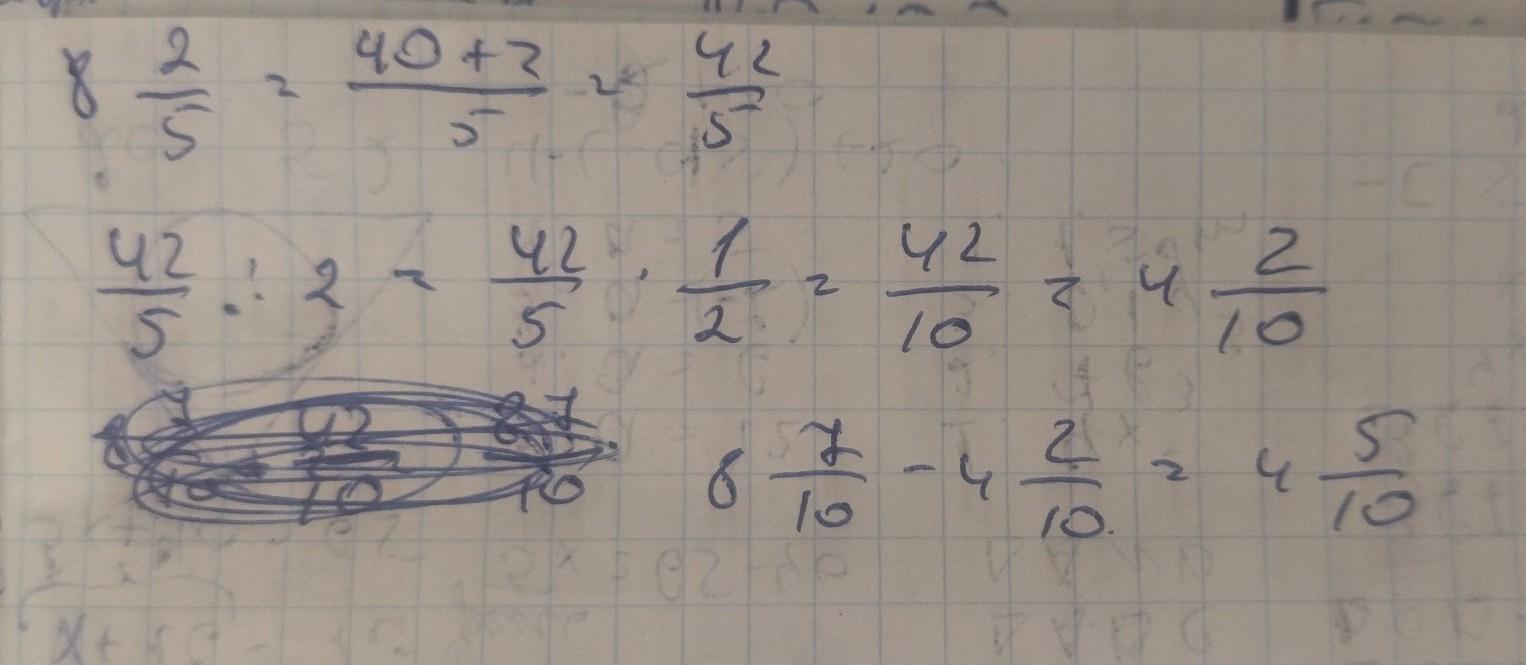 8 2/5 = 40+2/5 = 42/5
42/5 : 2 = 42/5 · 1/2 = 42/10 = 4 2/10
8 7/10 - 4 2/10 = 4 5/10